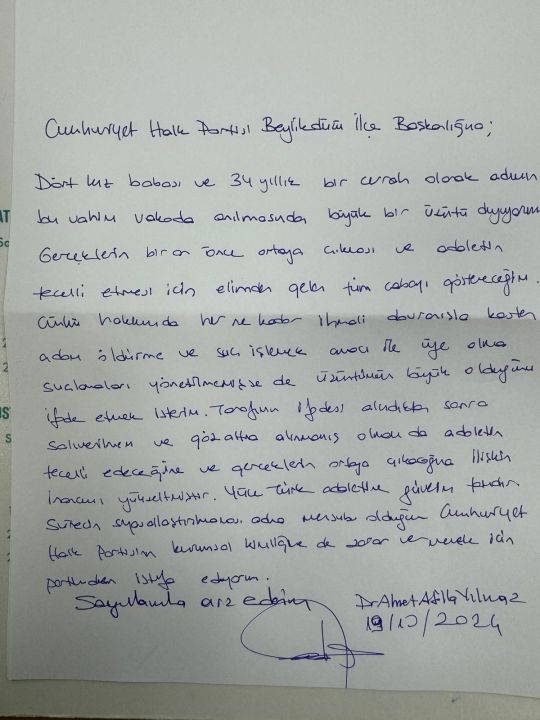 Cumhuriyet Halk Partisi Beylikdüzü İlçe Başkanlığına;
Dört kız babası ve 34 yıllık bir cerrah olarak adımın
bu vahim vakada anılmasından büyük bir üzüntü duyuyorum
Gerçeklerin bir an önce ortaya çıkması ve adaletin
tecelli etmesi için elimden gelen tüm çabayı göstereceğim.
Çünkü hakkımda her ne kadar ihmali davranışla kasten
adam öldürme ve suç işlemek amacı ile üye olma
suçlamaları yöneltilmemişse de üzüntümün büyük olduğunu
ifade etmek isterim. Tarafım ifadesi alındıktan sonra
salıverilmem ve gözaltına alınmamış olmam da adaletin
tecelli edeceğine ve gerçeklerin ortaya çıkacağına ilişkin
inancımı yükseltmiştir. Yüce Türk adaletine güvenim tamdır
Sürecin siyasallaştırılmaması adına mensubu olduğum Cumhuriyet
Halk Partisinin kurumsal kimliğine de zarar vermemek için
partimden istifa ediyorum.
Saygılarımla arz ederim
Dr Ahmet Atilla Yılmaz
19/10/2024